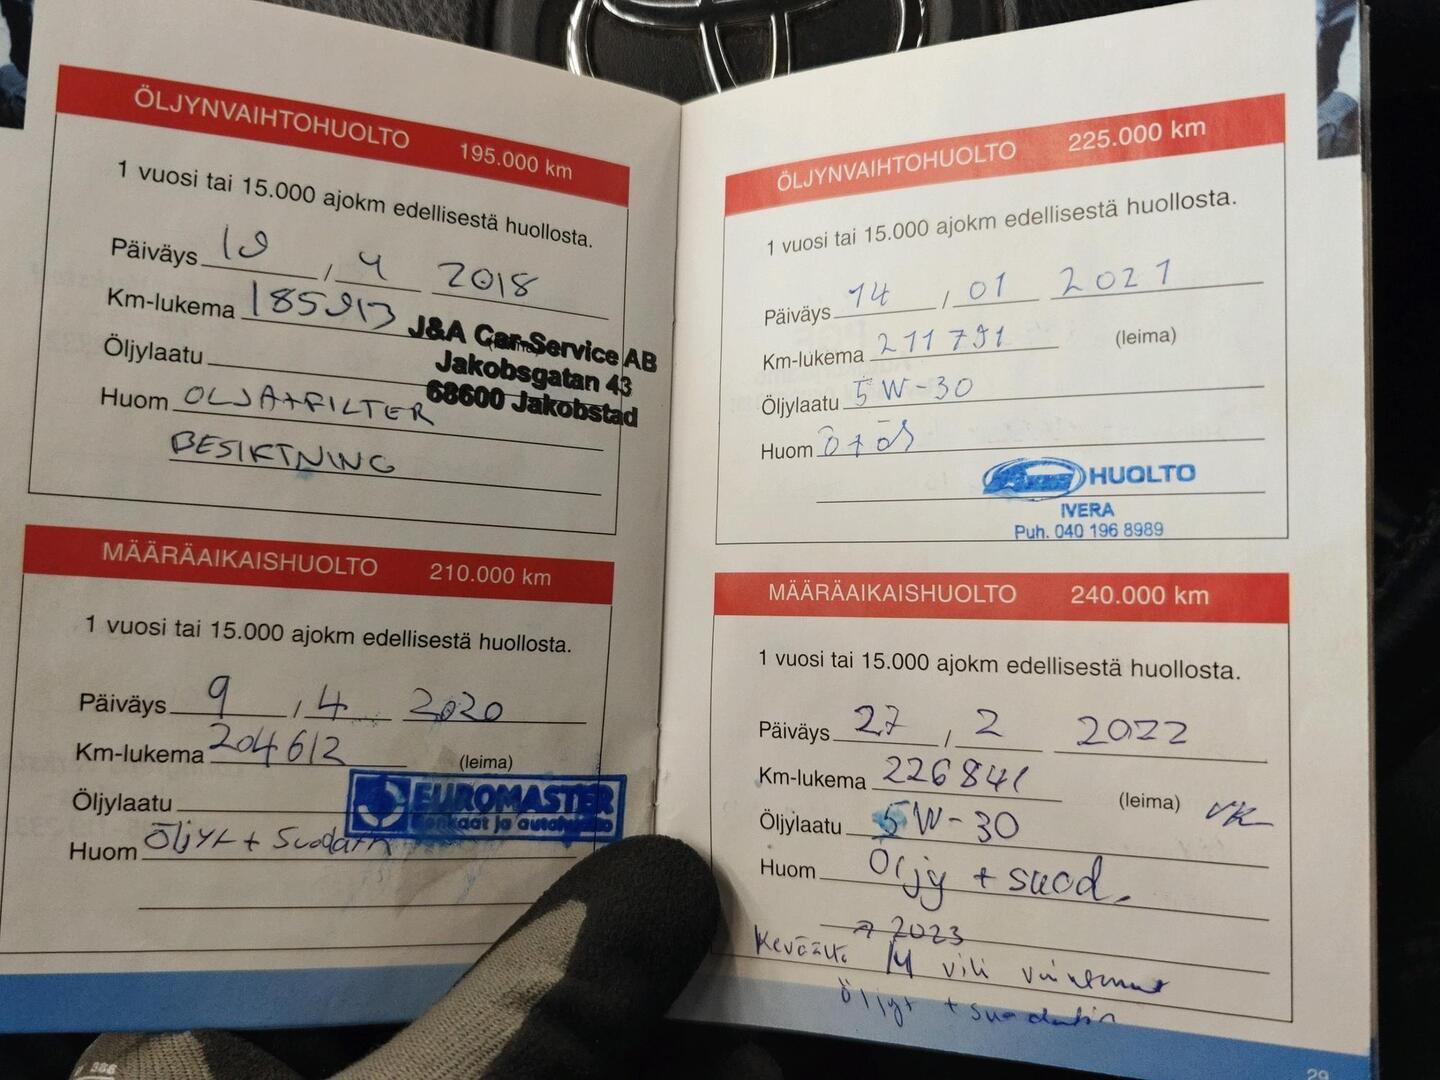 ÖLJYNVAIHTOHUOLTO 195.000 km
1 vuosi tai 15.000 ajokm edellisestä huollosta.
Päiväys 19 / 4 2018
Km-lukema 185913
J&A Car-Service AB
Jakobsgatan 43
68600 Jakobstad
Öljylaatu
Huom OLJA+FILTER
BESIKTNING
MÄÄRÄAIKAISHUOLTO 210.000 km
1 vuosi tai 15.000 ajokm edellisestä huollosta.
Päiväys 9 / 4 2020
Km-lukema 204612 (leima)
EUROMASTER
Öljylaatu
Huom Öljyt + Suodatin
ÖLJYNVAIHTOHUOLTO 225.000 km
1 vuosi tai 15.000 ajokm edellisestä huollosta.
Päiväys 14 / 01 2021
Km-lukema 211791 (leima)
Öljylaatu 5W-30
Huom Ö+ÖS
HUOLTO
IVERA
Puh. 040 196 8989
MÄÄRÄAIKAISHUOLTO 240.000 km
1 vuosi tai 15.000 ajokm edellisestä huollosta.
Päiväys 27 / 2 2022
Km-lukema 226841 (leima) VK
Öljylaatu 5W-30
Huom Öljy + suod.
2023
Keväällä vili
öljyt + suodatin
29